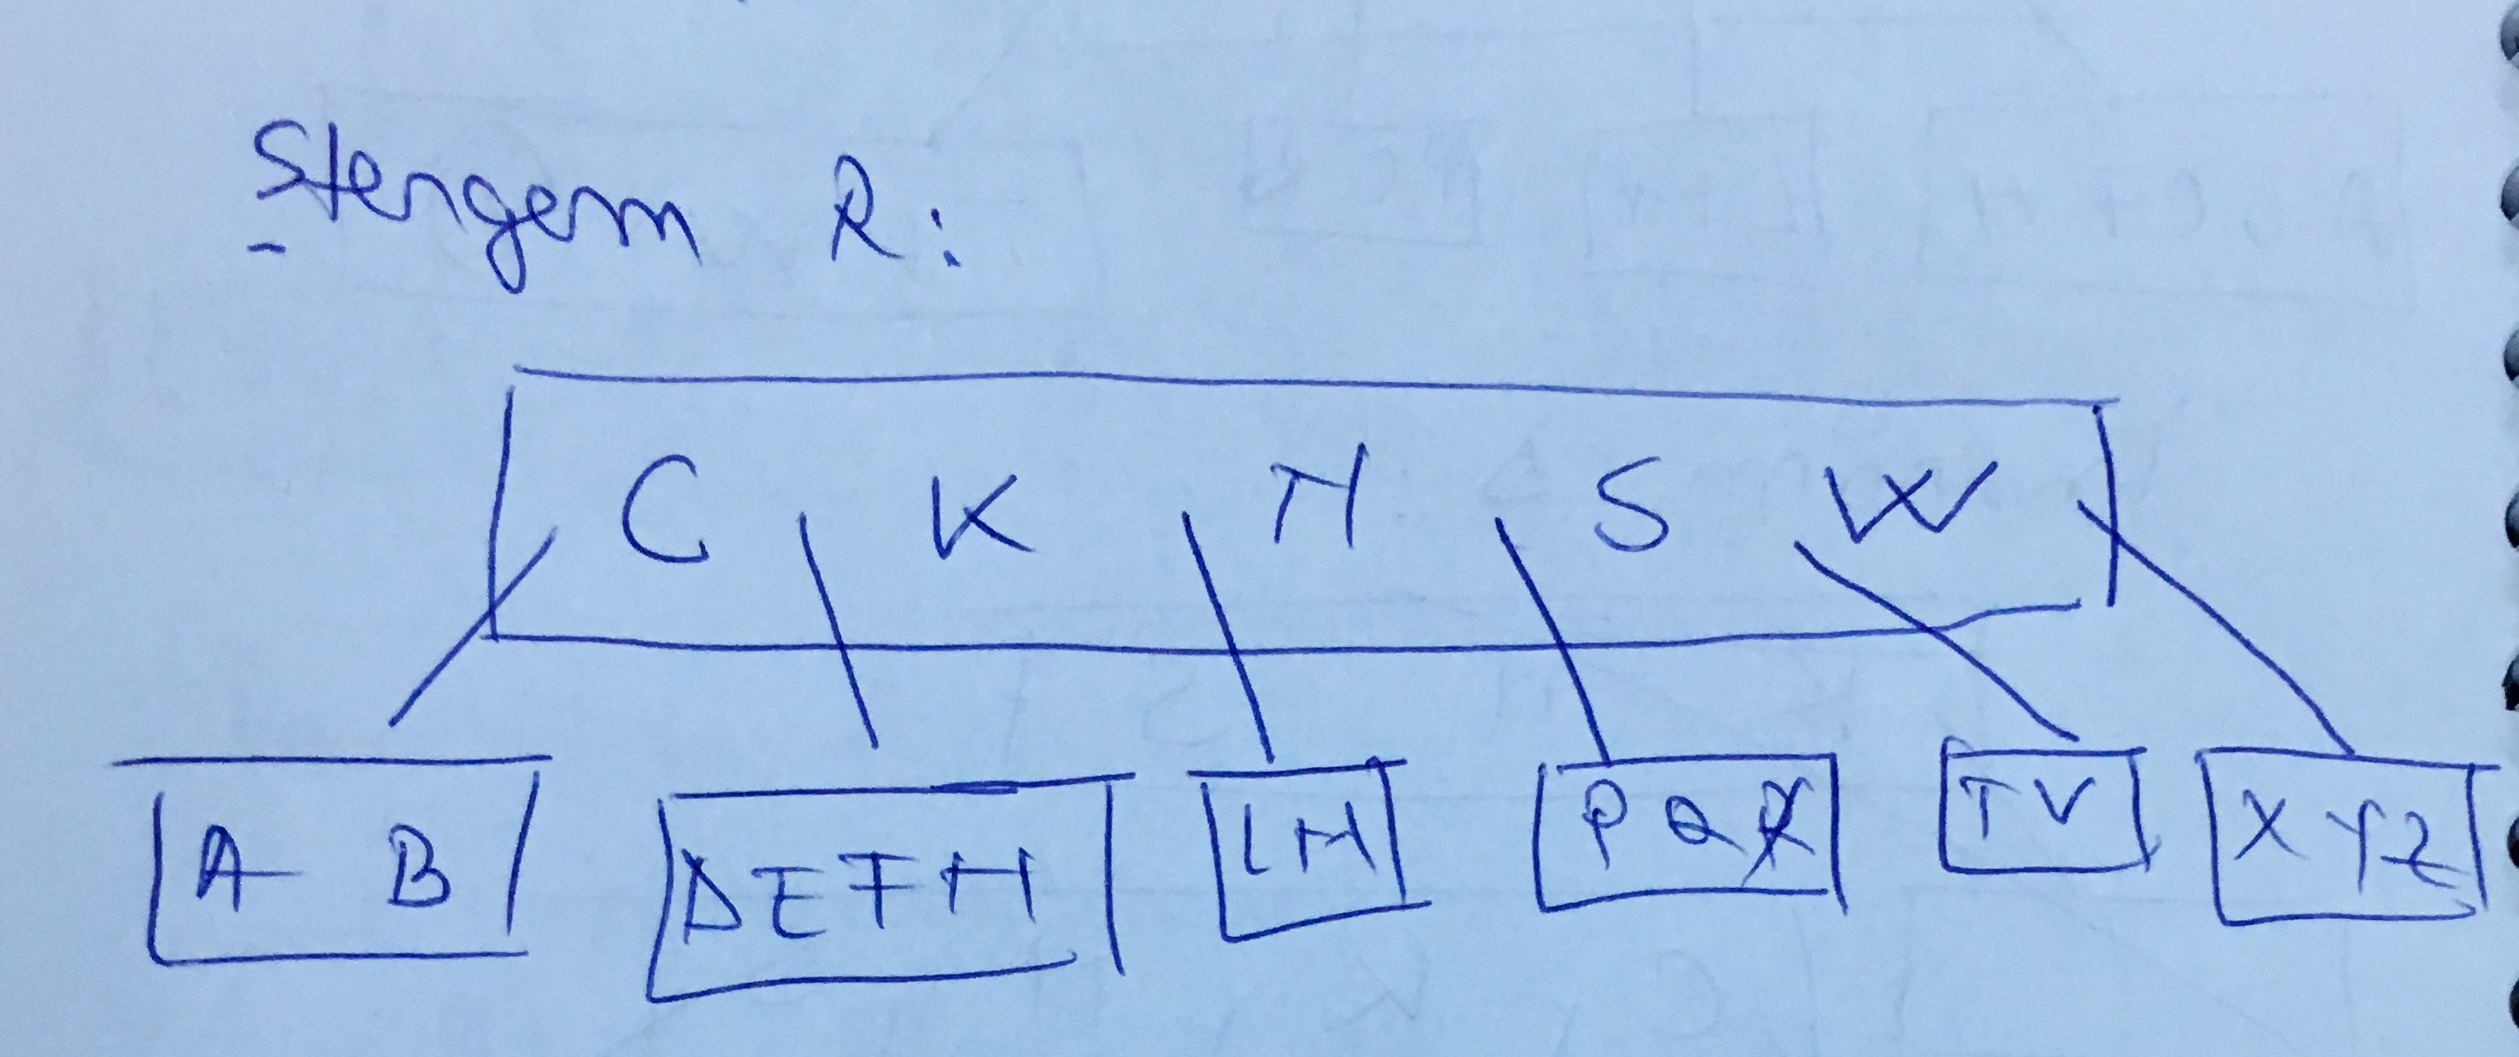 Stergem R:
C K N S W
A B DEFH LM PQR TV XYZ